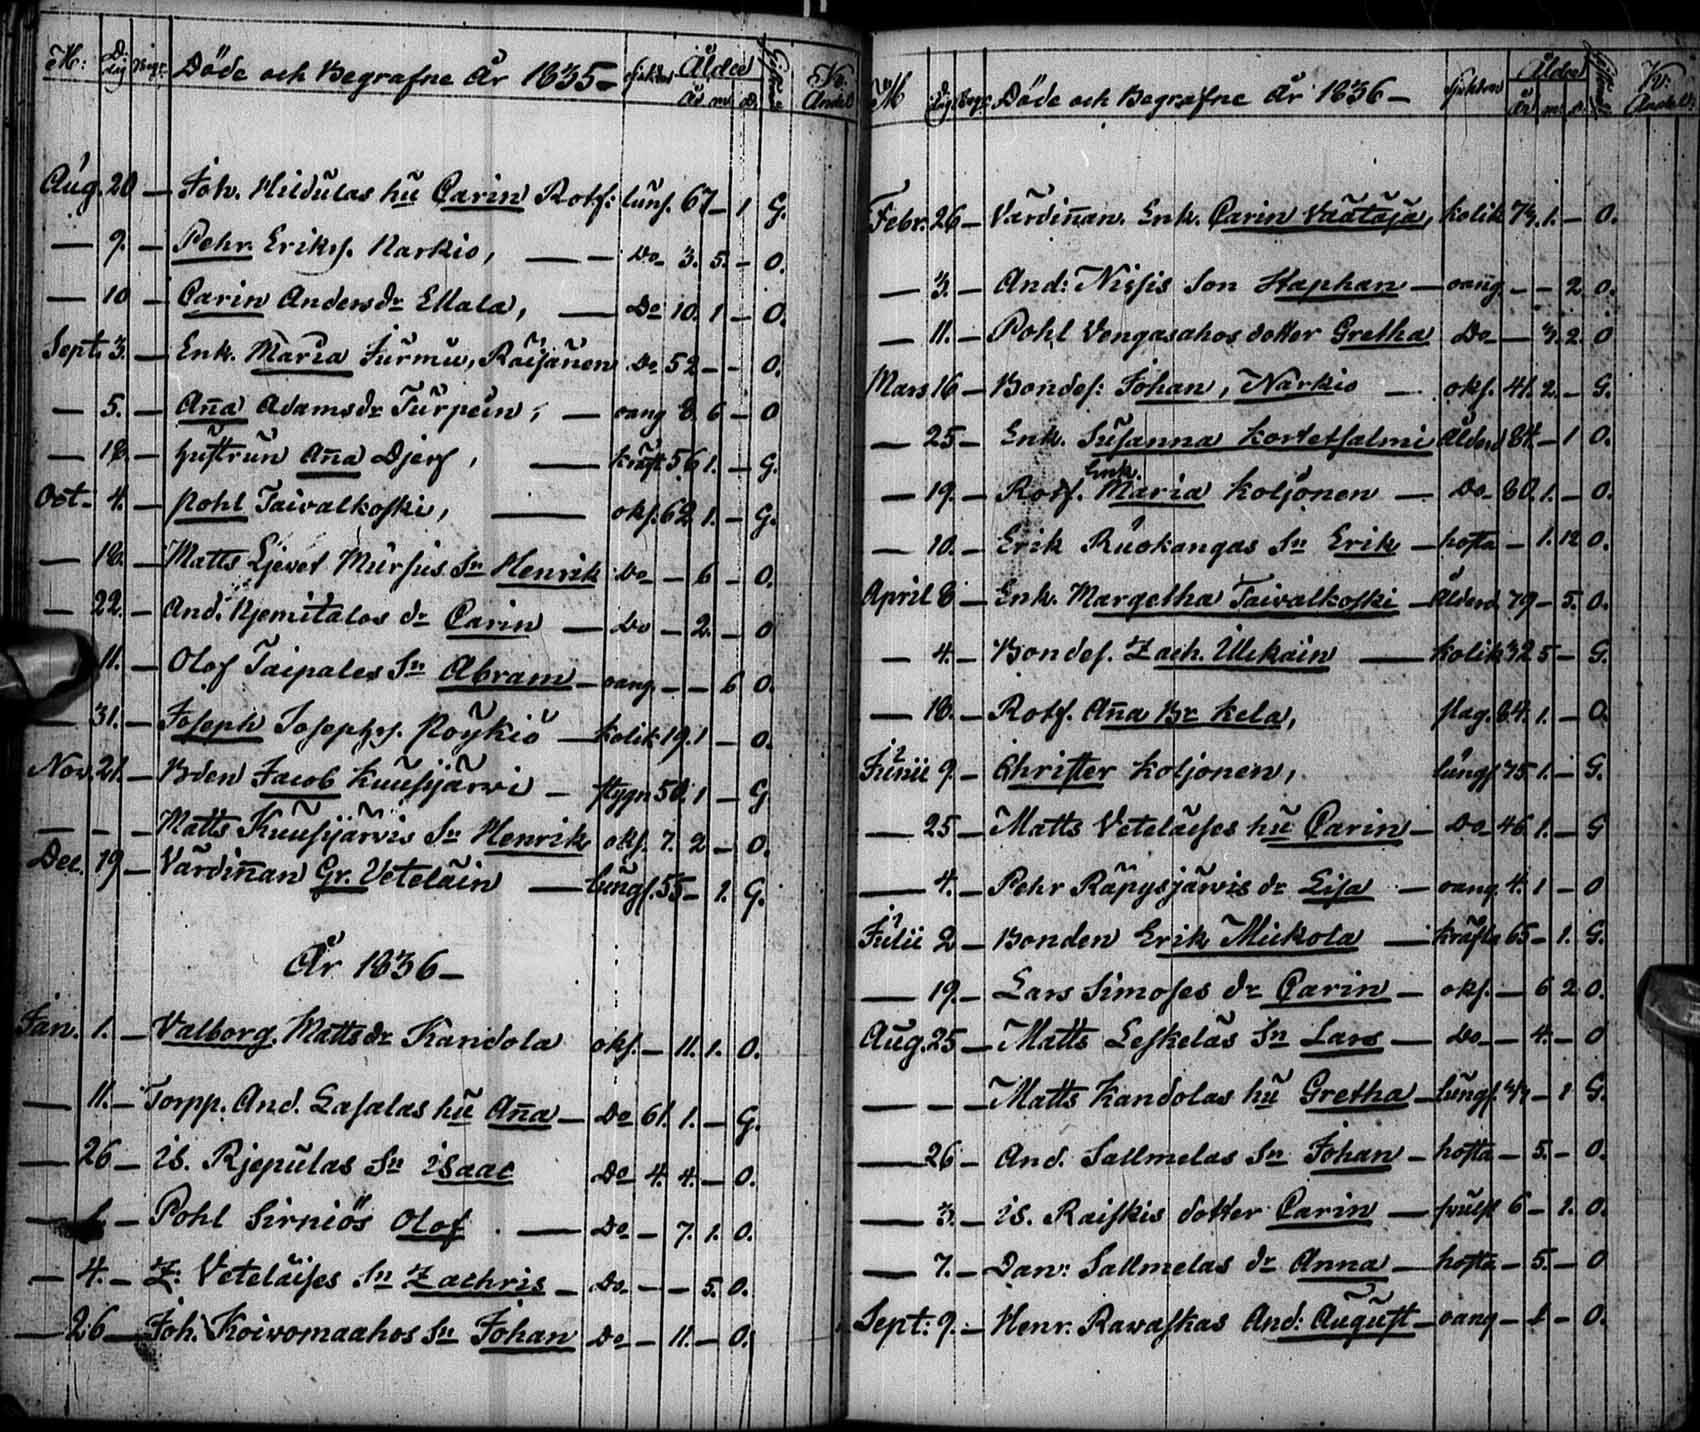 M: Dag Begr. Döde och Begrafne År 1835 – sjukdom Ålder År m. d. Kv: Andel
Aug. 20 – Joh. Hildulas hu Carin Rotf: lungs. 67 – 1 G.
— 9. – Pehr Eriks. Karkio, — Do 3. 5. – O.
— 10 – Carin Andersdr Ellala, — Do 10. 1 – O.
Sept. 3. – Enk. Maria Jurmu, Räisänen Do 52 – – O.
— 5. – Aña Adamsdr Turpein, — oäng 8. 6 – O
— 18. – Hustrun Aña Djerf, — kräft. 56 1. – G.
Oct. 4. – Pohl Taivalkoski, — oks. 62 1. – G.
— 18. – Matts Ljevet Mursus Sn Henrik Do – 6 – O.
— 22. – And. Kjemitalos dr Carin — Do – 2. – O
11. – Olof Taipales Sn Abram – oang. – – 6 O.
— 31. – Joseph Josephs. Pöykiö – kolik 19. 1 – O.
Nov. 21. – Bden Jacob Kuusijärvi – stygn 50. 1 – G
— – – Matts Kuusijärvis Sn Henrik oks. 7. 2 – O.
Dec. 19 – Värdiñan Gr. Veteläin — lungs. 55 – 1. G.
År 1836 –
Jan. 1. – Valborg Mattsdr Kandola oks. – 11. 1. O.
— 11. – Torpp. And. Lasalas hu Aña – Do 61. 1. – G.
— 26 – Is. Rjepulas Sn Isaac Do 4. 4. – O.
— – Pohl Sirniös Olof — Do – 7. 1. O.
— 4. – Z: Veteläises Sn Zachris – Do – – 5. O.
— 26 – Joh. Koivomaahos Sn Johan Do – 11. – O.
M Dag Begr: Döde och Begrafne År 1836 – sjukdom Ålder År m. d. Kv: Andel:
Febr. 26 – Värdiñan. Enk. Carin Väätäjä, kolik 73. 1. – O.
— 3. – And: Nissis Son Staphan – oang – – 2 O.
— 11. – Pohl Vengasahos dotter Gretha Do – 3. 2. O
Mars 16 – Bondes: Johan, Närkio — oks. 41. 2. – G.
— 25 – Enk. Susanna Kortetsalmi Ålderd. 84. – 1 O.
— 19. – Rotf. Enk. Maria Koljonen — Do 80. 1. – O.
— 10. – Erik Ruokangas Sn Erik – hosta – 1. 12 O.
April 8 – Enk. Margetha Taivalkoski – Ålderd. 79 – 5. O.
— 4. – Bondes. Zach. Ulckäin — kolik 32 5 – G.
— 18. – Rotf. Aña Br Kela, slag. 84. 1. – O.
Junii 9 – Christer Koljonen, lungs 75 1. – G.
— 25 – Matts Veteläises hu Carin – Do 46 1. – G
— 4. – Pehr Räpysjärvis dr Lisa — oang. 4. 1 – O
Julii 2 – Bonden Erik Mickola — kräfta 65 – 1. G.
— 19. – Lars Simoses dr Carin – oks. – 6 2 O.
Aug. 25 – Matts Leskeläs Sn Lars — Do – 4. – O
— – – Matts Kandolas hu Gretha – lungs. 34 – 1 G.
— 26 – And. Sallmelas Sn Johan – hosta – 5. – O.
— 3. – Is. Raiskis dotter Carin — svulst 6 – 1. O.
— 7. – Dan: Sallmelas dr Anna — hosta – 5. – O
Sept: 9. – Henr. Ravaskas And: August – oang – 1 – O.